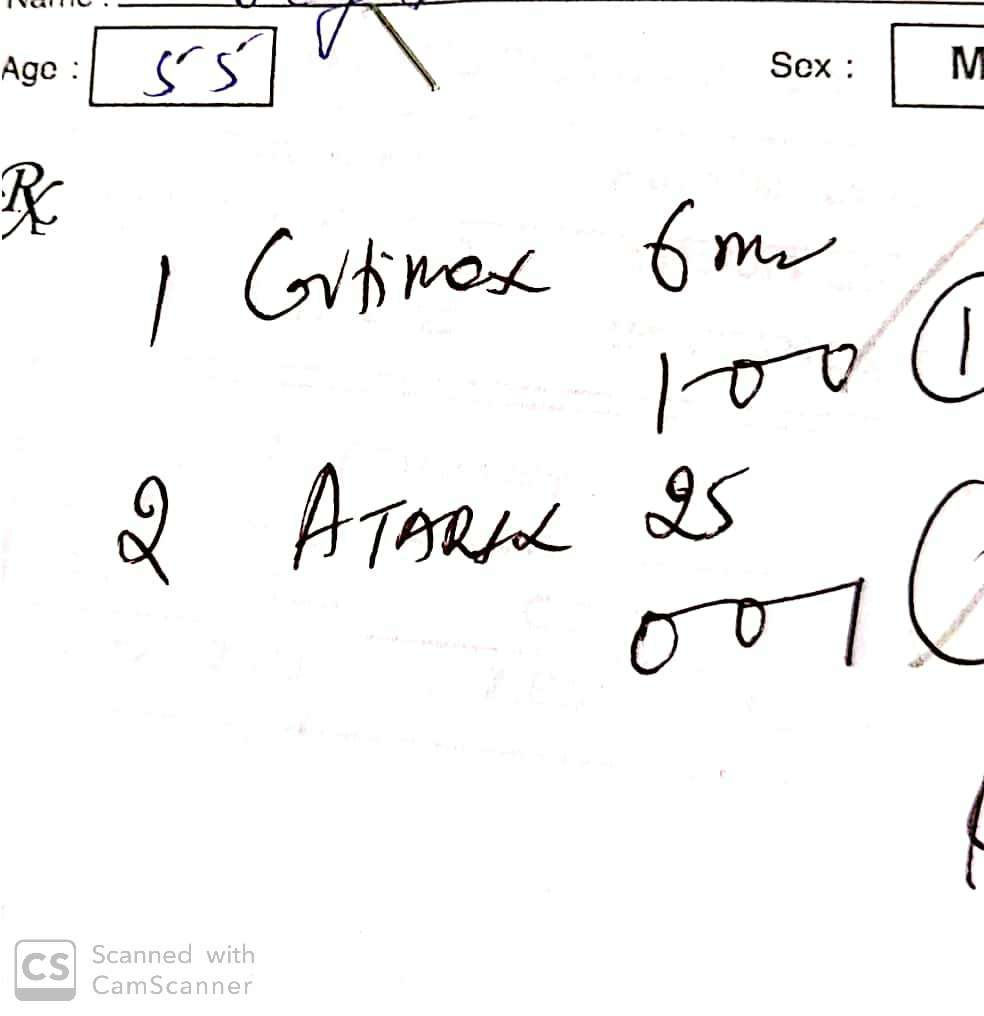 Name :
Age : 55 Sex : M
Rx
1 Cortimax 6 mg
1 0 0 1
2 ATARAX 25
0 0 1
CS Scanned with
CamScanner